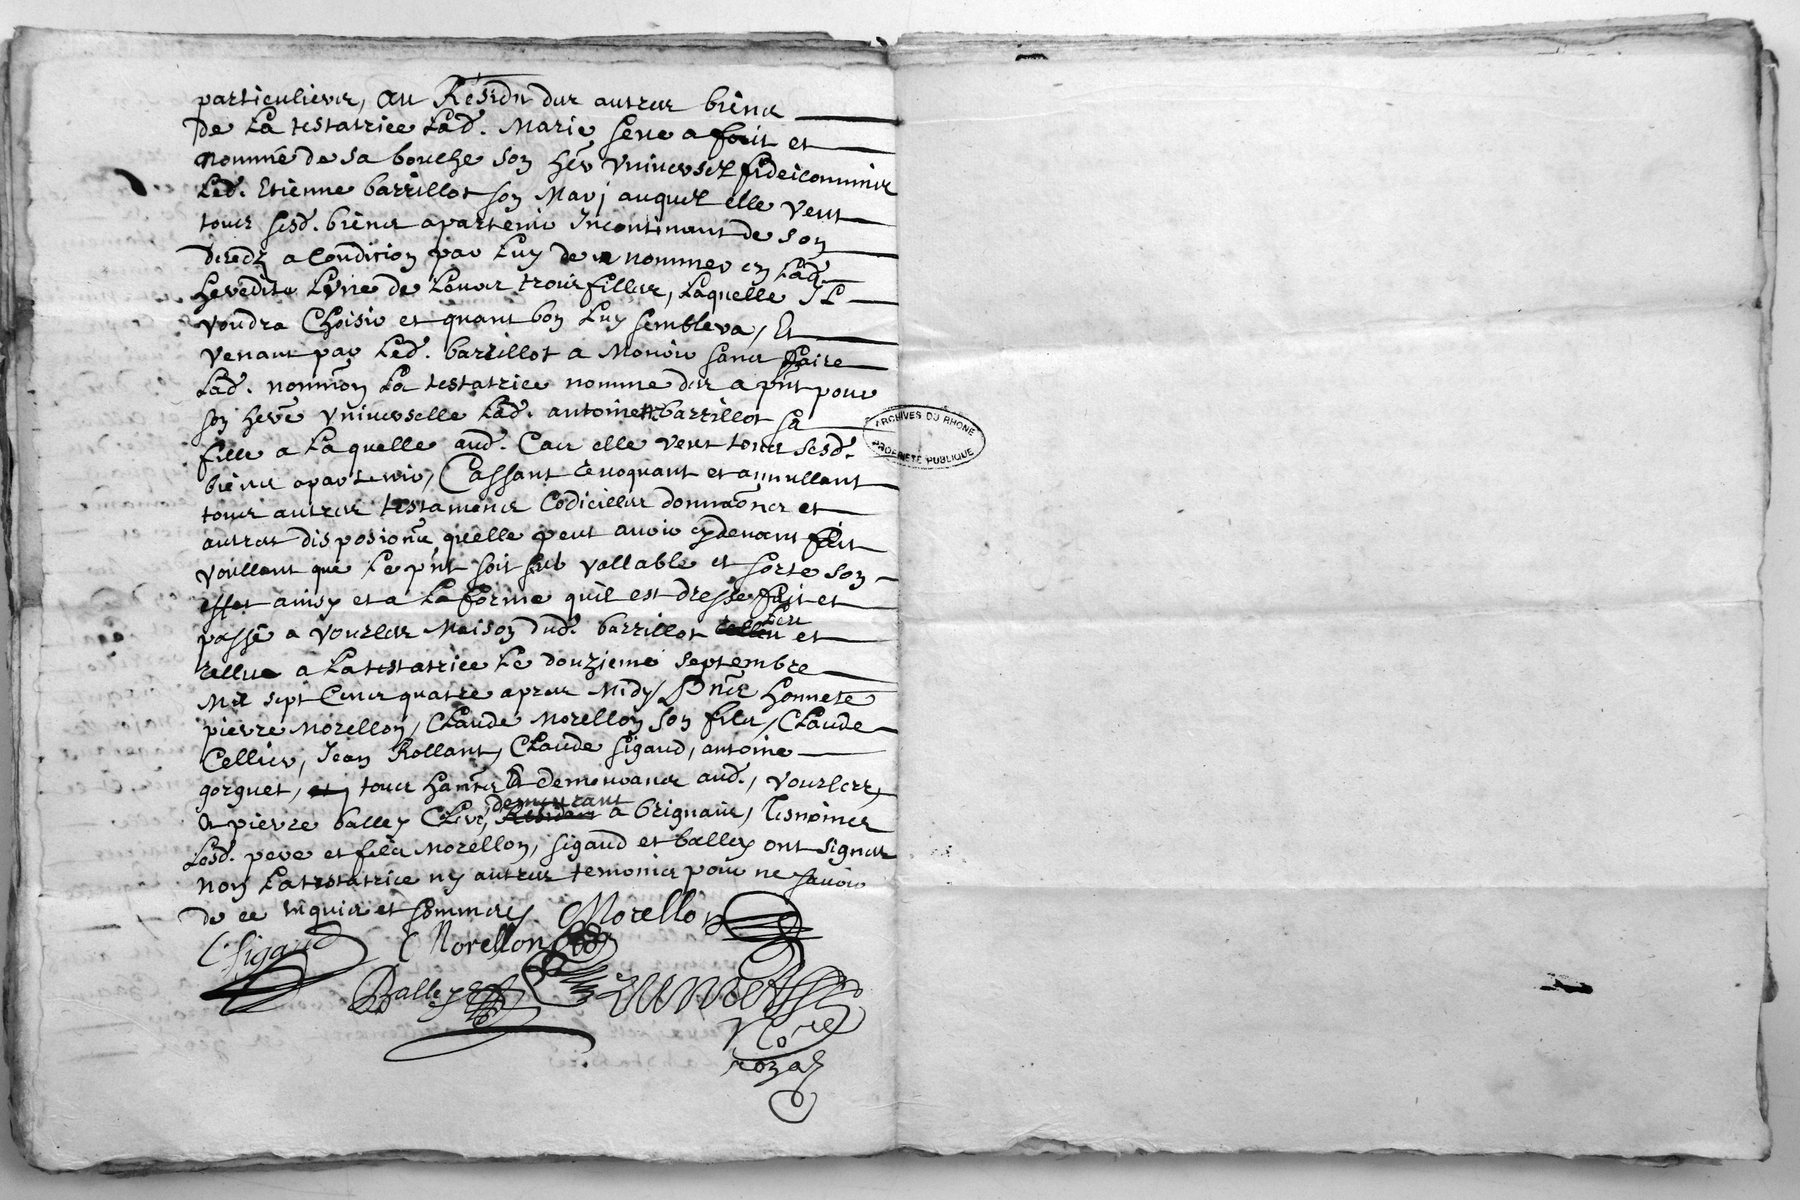 particuliers, Au Residu des autres biens
de La testatrice Lad. Marie seue a fait et
nommé de sa bouche son her vniuersel fideicommis
Led. Etienne barrillot son Mary auquel elle veut
tous sesd. biens apartenir Incontinant de son
decedz a Condition par Luy de nommer en Lad.
heredite L'vne de Leurs trois filles, Laquelle IL
voudra Choisir et quant bon Luy semblera, Et
venant par Led. barrillot a Mourir sans faire
Lad. nommon La testatrice nomme des a pnt pour
son here vniuerselle Lad. antoinette barrillot sa
fille a Laquelle aud. Cas elle veut tous sesd.
biens apartenir, Cassant reuoquant et annullant
tous autres testamens Codicilles donnaons et
autres disposions quelle peut auoir cydeuant fait
voullant que Le pnt soit seul vallable et sorte son
effet ainsy et a La forme quil est dressé fait et
passé a vourles Maison dud. barrillot Leu et
rellue a La testatrice Le douzieme septembre
Mil sept Cens quatre apres Midy, Pnts honnete
pierre Morellon, Claude Morellon son fils, Claude
Cellier, Jean Rollant, Claude sigaud, antoine
gorguet, tous hants & demeurans aud. vourles,
demeurant
& pierre balley Clerc, a brignais, tesmoins
Lesd. pere et fils Morellon, sigaud et balley ont signes
non La testatrice ny autres temoins pour ne sauoir
de ce enquis et sommes. Morellon
C sigaud C Morellon
Balley
Nore
royal
ARCHIVES DU RHONE
PROPRIETE PUBLIQUE